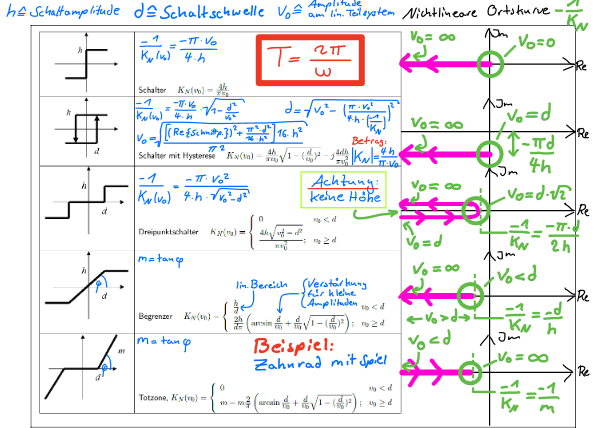 h ≙ Schaltamplitude d ≙ Schaltschwelle V₀ ≙ Amplitude am lin. Teilsystem Nichtlineare Ortskurve -1/K_N
h
-1/K_N(v₀) = -π·v₀/4·h
T = 2π/ω
Schalter K_N(v₀) = 4h/πv₀
Jm
V₀=∞
V₀=0
Re
h
d
-1/K_N(v₀) = -π·v₀/4·h · √(1-d²/v₀²)
d = √(v₀² - (π·v₀²/4·h·(1/K_N))²)
V₀ = √([(Re{Schnittp.})² + π²·d²/16·h²]·16·h²/π²)
Betrag:
|K_N| = 4·h/π·v₀
Schalter mit Hysterese K_N(v₀) = 4h/πv₀ √(1-(d/v₀)²) - j 4dh/πv₀²
Jm
V₀=∞
V₀=d
-πd/4h
Re
h
d
-1/K_N(v₀) = -π·v₀²/4·h·√(v₀²-d²)
Achtung:
keine Höhe
Dreipunktschalter K_N(v₀) = { 0 v₀ < d
4h√(v₀²-d²)/πv₀² ; v₀ ≥ d
Jm
V₀=∞
V₀=d·√2
V₀=d
-1/K_N = -π·d/2h
Re
h
φ
d
m=tanφ
lin. Bereich
Verstärkung für kleine Amplituden
Begrenzer K_N(v₀) = { h/d v₀ < d
2h/dπ (arcsin d/v₀ + d/v₀ √(1-(d/v₀)²)) ; v₀ ≥ d
Jm
V₀=∞
V₀<d
← V₀>d →
-1/K_N = -d/h
Re
m
φ
d
m=tanφ
Beispiel:
Zahnrad mit Spiel
Totzone, K_N(v₀) = { 0 v₀ < d
m - m 2/π (arcsin d/v₀ + d/v₀ √(1-(d/v₀)²)) ; v₀ ≥ d
Jm
V₀<d
V₀=∞
-1/K_N = -1/m
Re